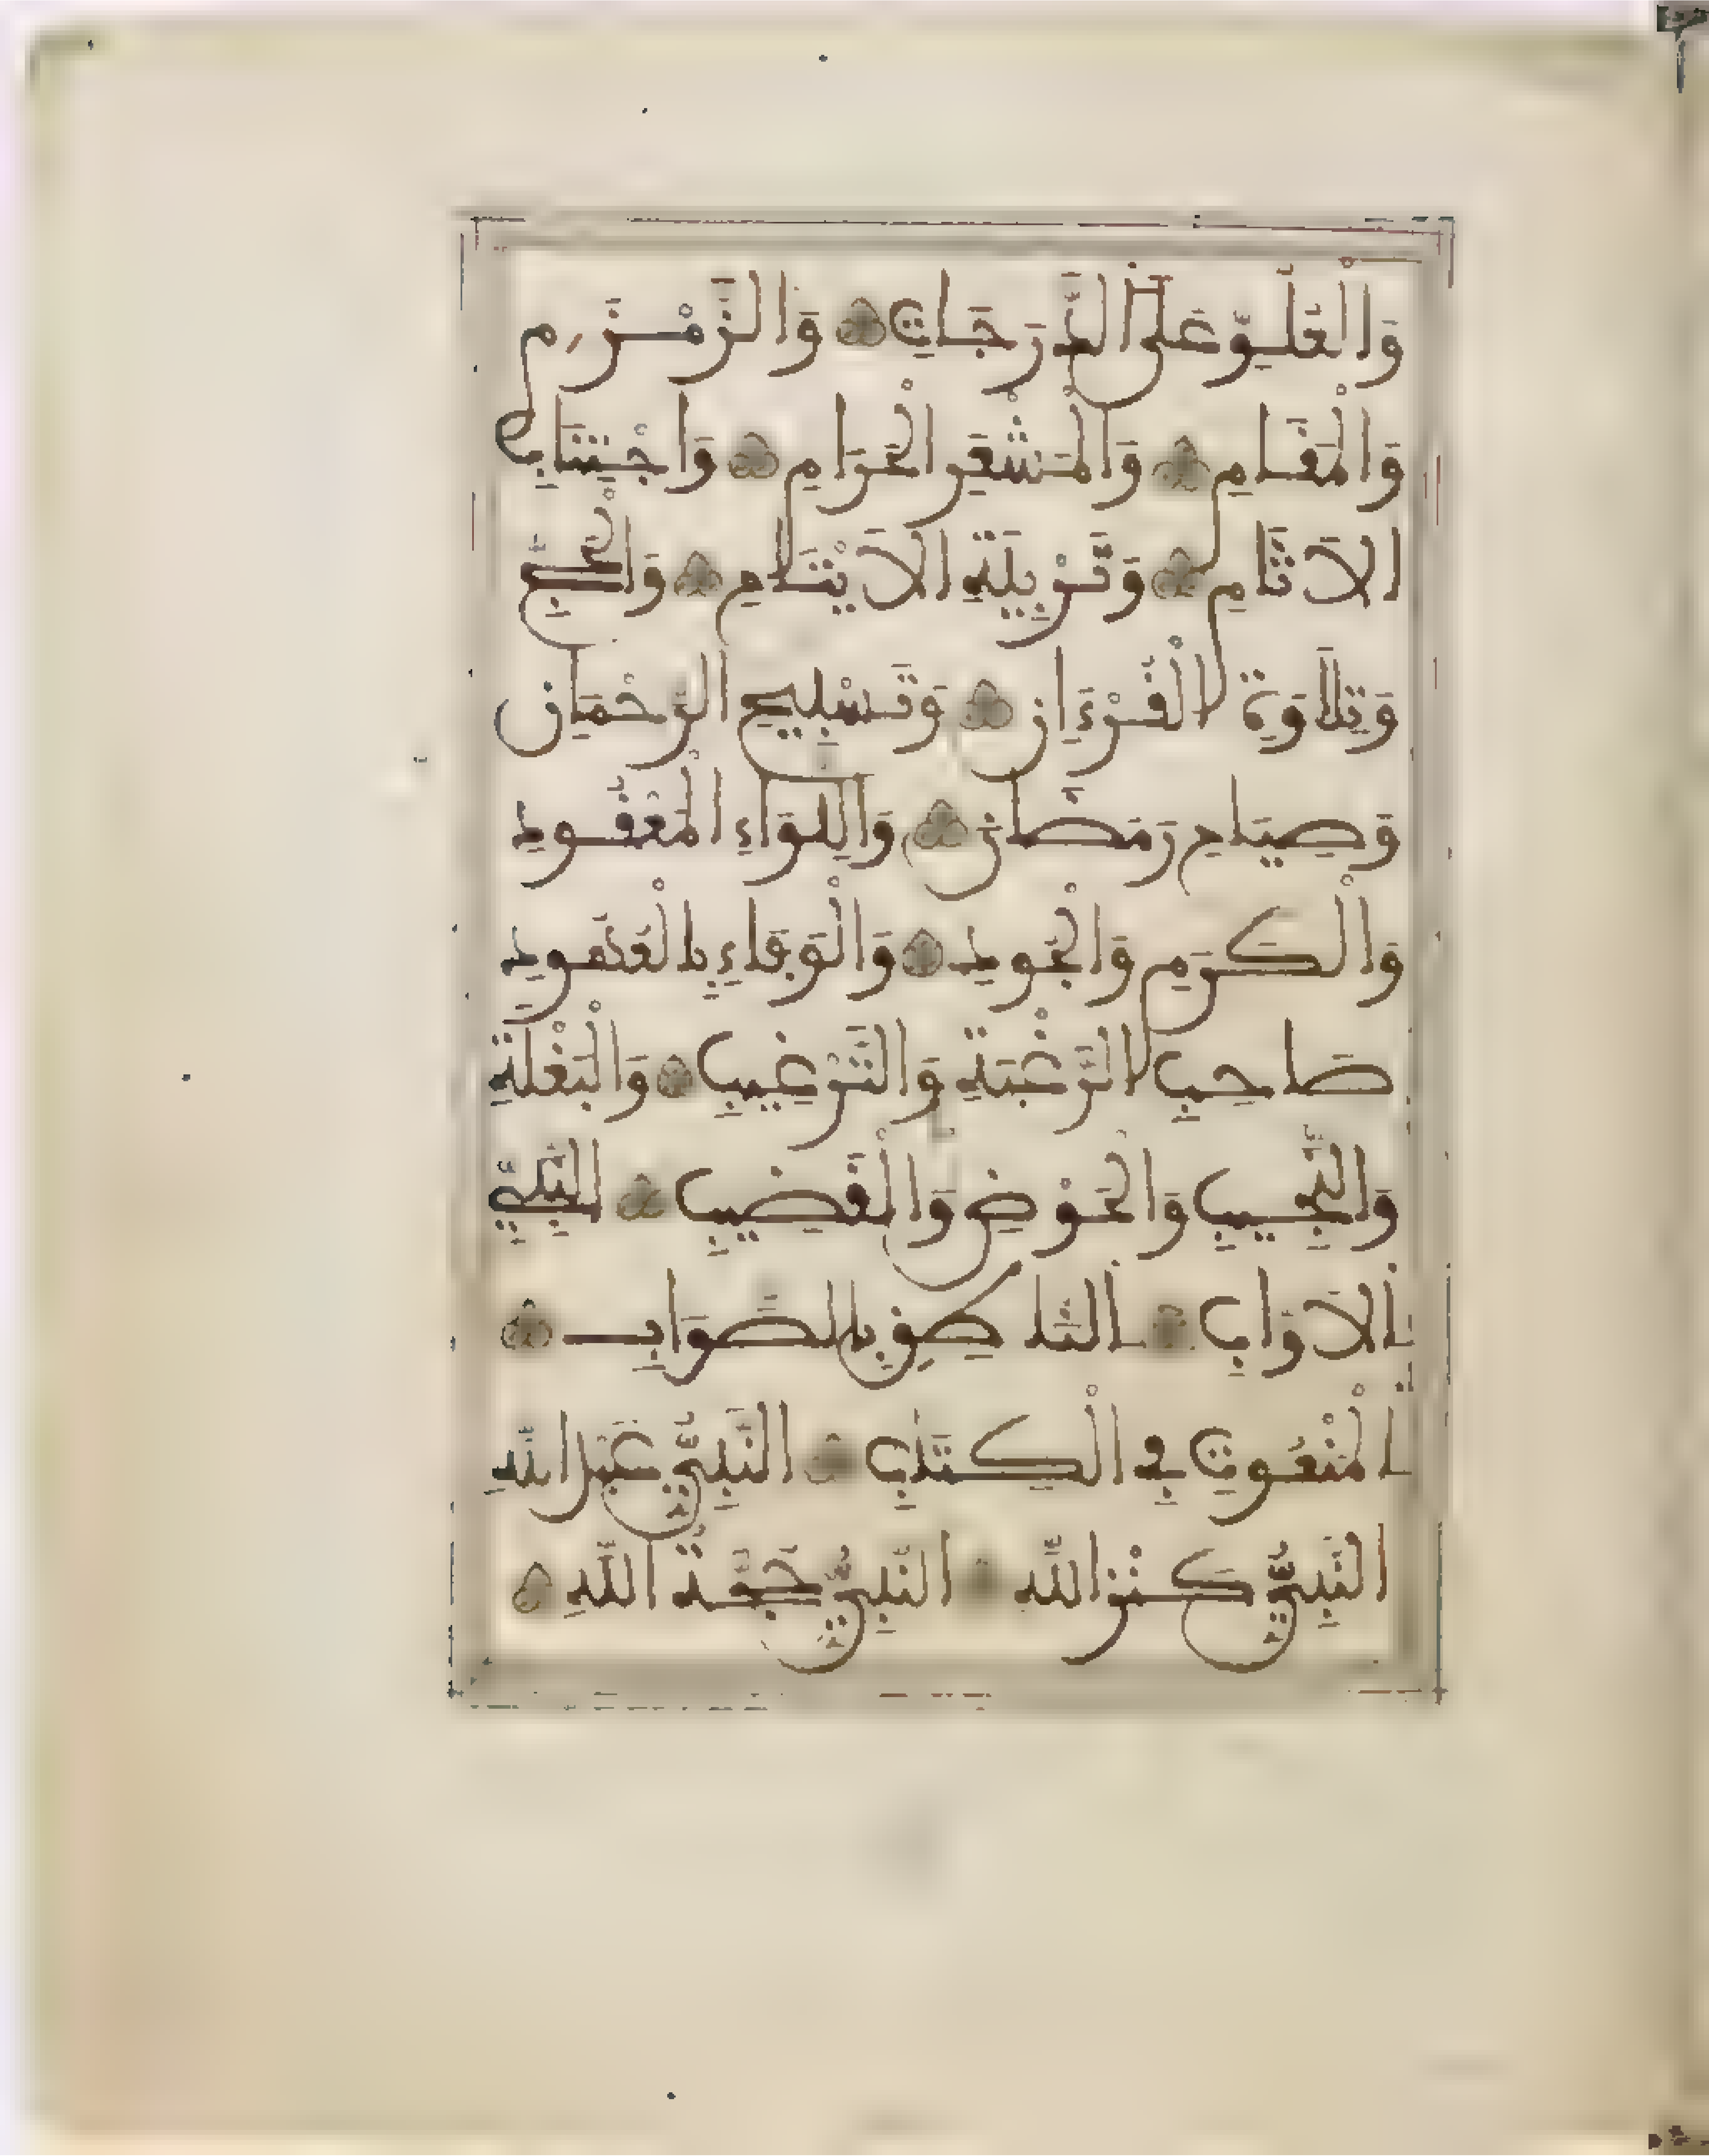 وَالْعُلُوِّ عَلَى الدَّرَجَاتِ وَالزَّمْزَمِ
وَالْمَقَامِ وَالْمَشْعَرِ الْحَرَامِ وَاجْتِنَابِ
الَاثَامِ وَتَرْبِيَةِ الَايْتَامِ وَالْحَجِّ
وَتِلَاوَةِ الْقُرْءَانِ وَتَسْبِيحِ الرَّحْمَانِ
وَصِيَامِ رَمَضَانَ وَاللِّوَاءِ الْمَعْقُودِ
وَالْكَرَمِ وَالْجُودِ وَالْوَفَاءِ بِالْعُهُودِ
صَاحِبِ الرَّغْبَةِ وَالتَّرْغِيبِ وَالْبَغْلَةِ
وَالنَّجِيبِ وَالْحَوْضِ وَالْقَضِيبِ النَّبِيِّ
الَاوَّابِ النَّاطِقِ بِالصَّوَابِ
الْمَنْعُوتِ فِي الْكِتَابِ النَّبِيِّ عَبْدِ اللَّهِ
النَّبِيِّ كَنْزِ اللَّهِ النَّبِيِّ حُجَّةِ اللَّهِ